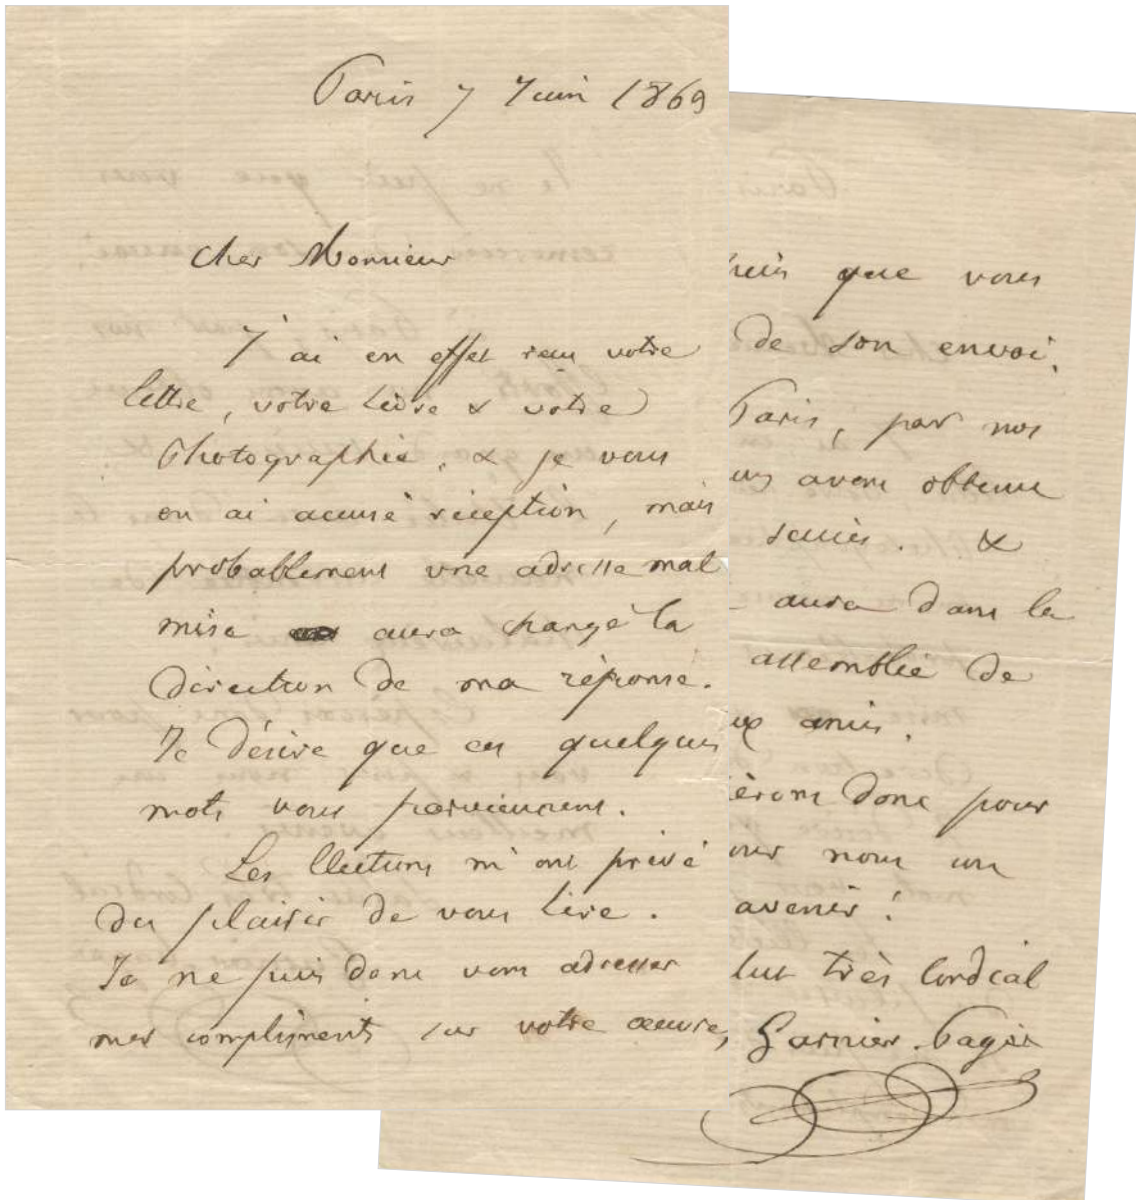 Paris 7 Juin 1869
Cher Monsieur
J'ai en effet recu votre
lettre, votre livre & votre
Photographie, & je vous
en ai accusé réception, mais
probablement une adresse mal
mise aura changé la
direction de ma réponse.
Je désire que ces quelques
mots vous parviennent.
Les Elections m'ont privé
du plaisir de vous lire.
Je ne puis donc vous adresser
mes compliments sur votre oeuvre,
que vous
de son envoi.
Paris, par nos
avons obtenu
succès. &
aura dans la
assemblée de
amis.
donc pour
nous un
avenir !
très Cordial
Garnier-Pagès